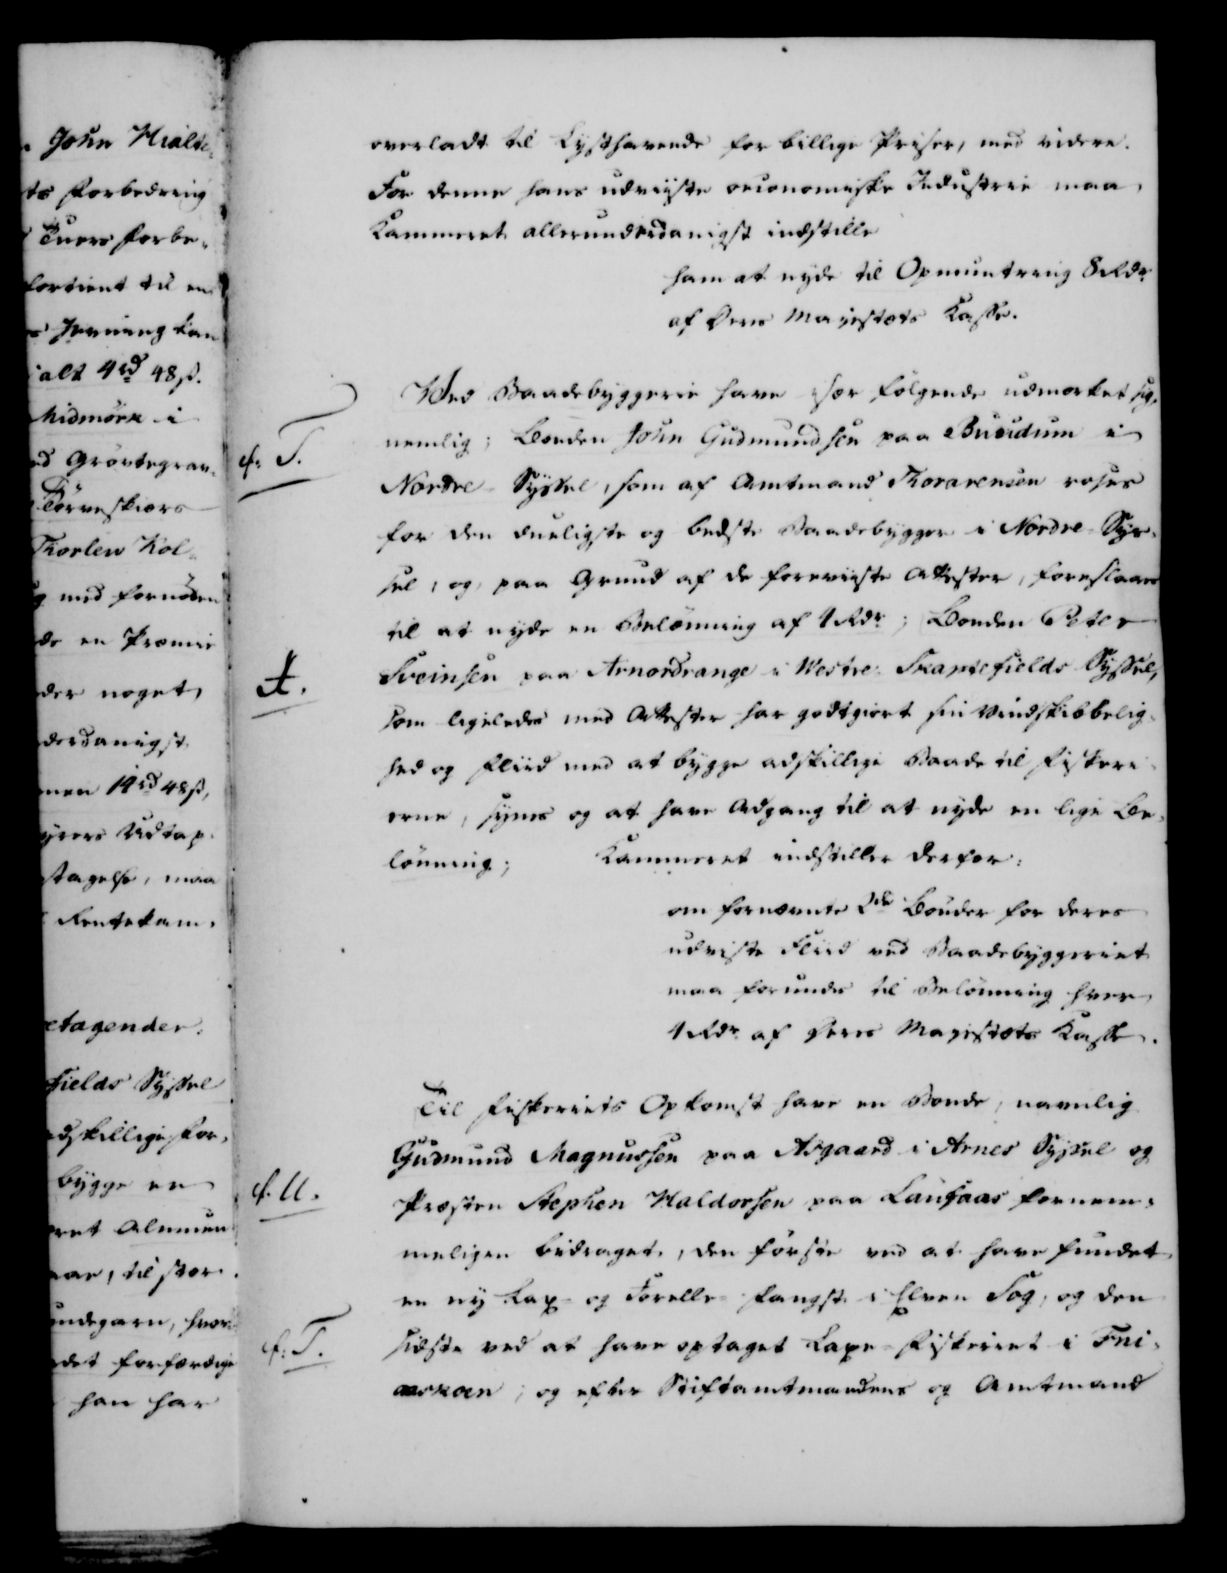 John Hialte
ts Forbedring
Tuers Forbe-
fortient til en
Jevning kan
alt 4 rd 48 ß.
Midmörk i
ed Grövtegrav-
Törveskiærs
Thorlew Kol-
og med fornöden
de en Præmie
der noget,
derdanigst
men 14 rd 48 ß,
yrers Udtap-
tagelse, maa
Rentekam-
etagender.
fields Syssel
adskillige For-
bygge en
ret Almuen
aar, til stor
undegarn, hvor-
det forfærdige
han har
overladt til Lysthavende for billige Priser, med videre.
For denne hans udviiste oeconomiske Industrie maa
Kammeret allerunderdanigst indstille
ham at nyde til Opmuntring 8 Rdr
af Deres Majestæts Kasse.
Ved Baadebyggerie have især følgende udmærket sig,
nemlig: Bonden John Gudmundsen paa Buudum i
f: T.
Nordre Syssel, som af Amtmand Thorarensen roses
for den dueligste og bedste Baadebygger i Nordre-Sys-
sel, og, paa Grund af de foreviiste Attester, foreslaaes
til at nyde en Belönning af 4 Rdr; Bonden Peter
Sveinsen paa Arnordrange i Westre-Skaptefields Syssel,
t.
som ligeledes med Attester har godtgiort sin Vindskibbelig-
hed og Fliid med at bygge adskillige Baade til Fiskeri-
erne, synes og at have Adgang til at nyde en lige Be-
lönning; Kammeret indstiller derfor:
om fornævnte 2de Bönder for deres
udviste Fliid ved Baadebyggeriet
maa forundes til Belönning hver
4 Rdr af Deres Majestæts Kasse.
Til Fiskeriets Opkomst have en Bonde, navnlig
Gudmund Magnussen paa Asgaard i Arnes Syssel og
f. U.
Præsten Stephen Haldorsen paa Laufaas fornem-
meligen bidraget, den förste ved at have fundet
en ny Lax- og Forelle-Fangst i Elven Sog, og den
f: T.
sidste ved at have optaget Laxe-Fiskeriet i Fni-
oskaen; og efter Stiftamtmandens og Amtmand